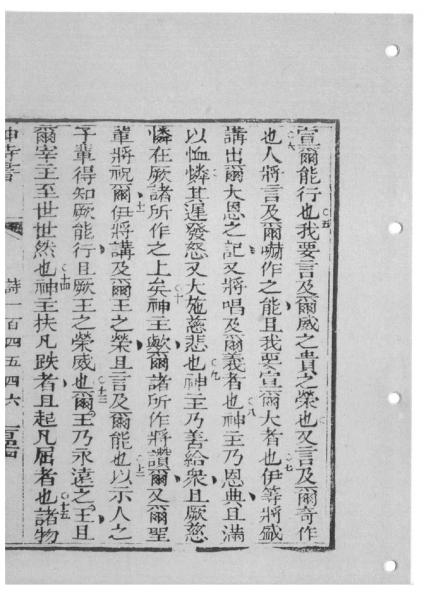 宣爾能行也○五我要言及爾威之貴之榮也又言及爾奇作
也○六人將言及爾嚇作之能且我要宣爾大者也○七伊等將盛
講出爾大恩之記又將唱及爾義者也○八神主乃恩典且滿
以恤憐其遲發怒又大施慈悲也○九神主乃善給衆且厥慈
憐在厥諸所作之上矣○十神主歟爾諸所作將讚爾又爾聖
輩將祝爾○十一伊將講及爾王之榮且言及爾能也○十二以示人之
子輩得知厥能行且厥王之榮威也○十三爾王乃永遠之王且
爾宰王至世世然也○十四神主扶凡跌者且起凡屈者也○十五諸物
神詩書 詩一百四五四六